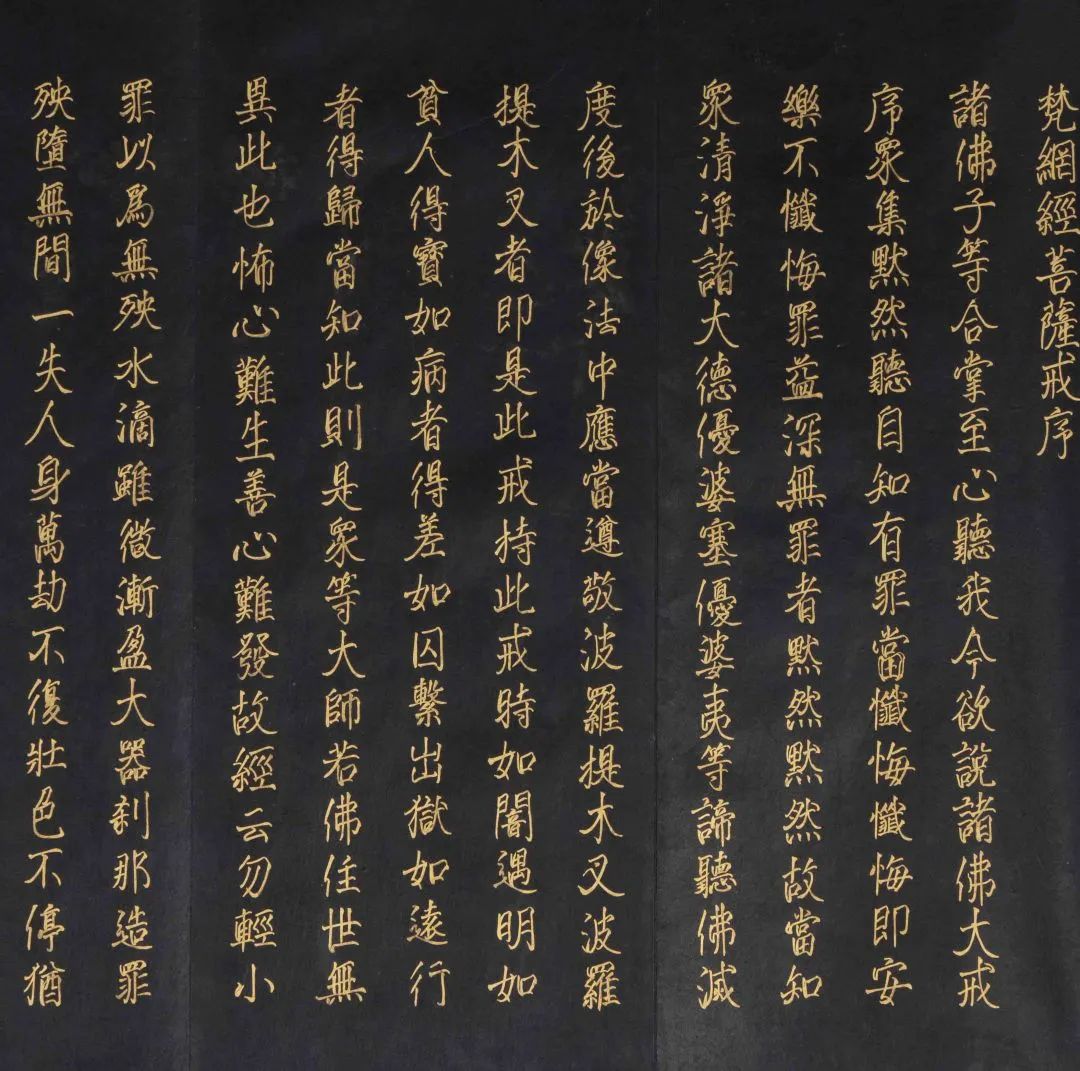 梵網經菩薩戒序
諸佛子等合掌至心聽我今欲說諸佛大戒
序眾集默然聽自知有罪當懺悔懺悔即安
樂不懺悔罪益深無罪者默然默然故當知
眾清淨諸大德優婆塞優婆夷等諦聽佛滅
度後於像法中應當遵敬波羅提木叉波羅
提木叉者即是此戒持此戒時如闇遇明如
貧人得寶如病者得差如囚繫出獄如遠行
者得歸當知此則是眾等大師若佛住世無
異此也怖心難生善心難發故經云勿輕小
罪以為無殃水滴雖微漸盈大器剎那造罪
殃墮無間一失人身萬劫不復壯色不停猶